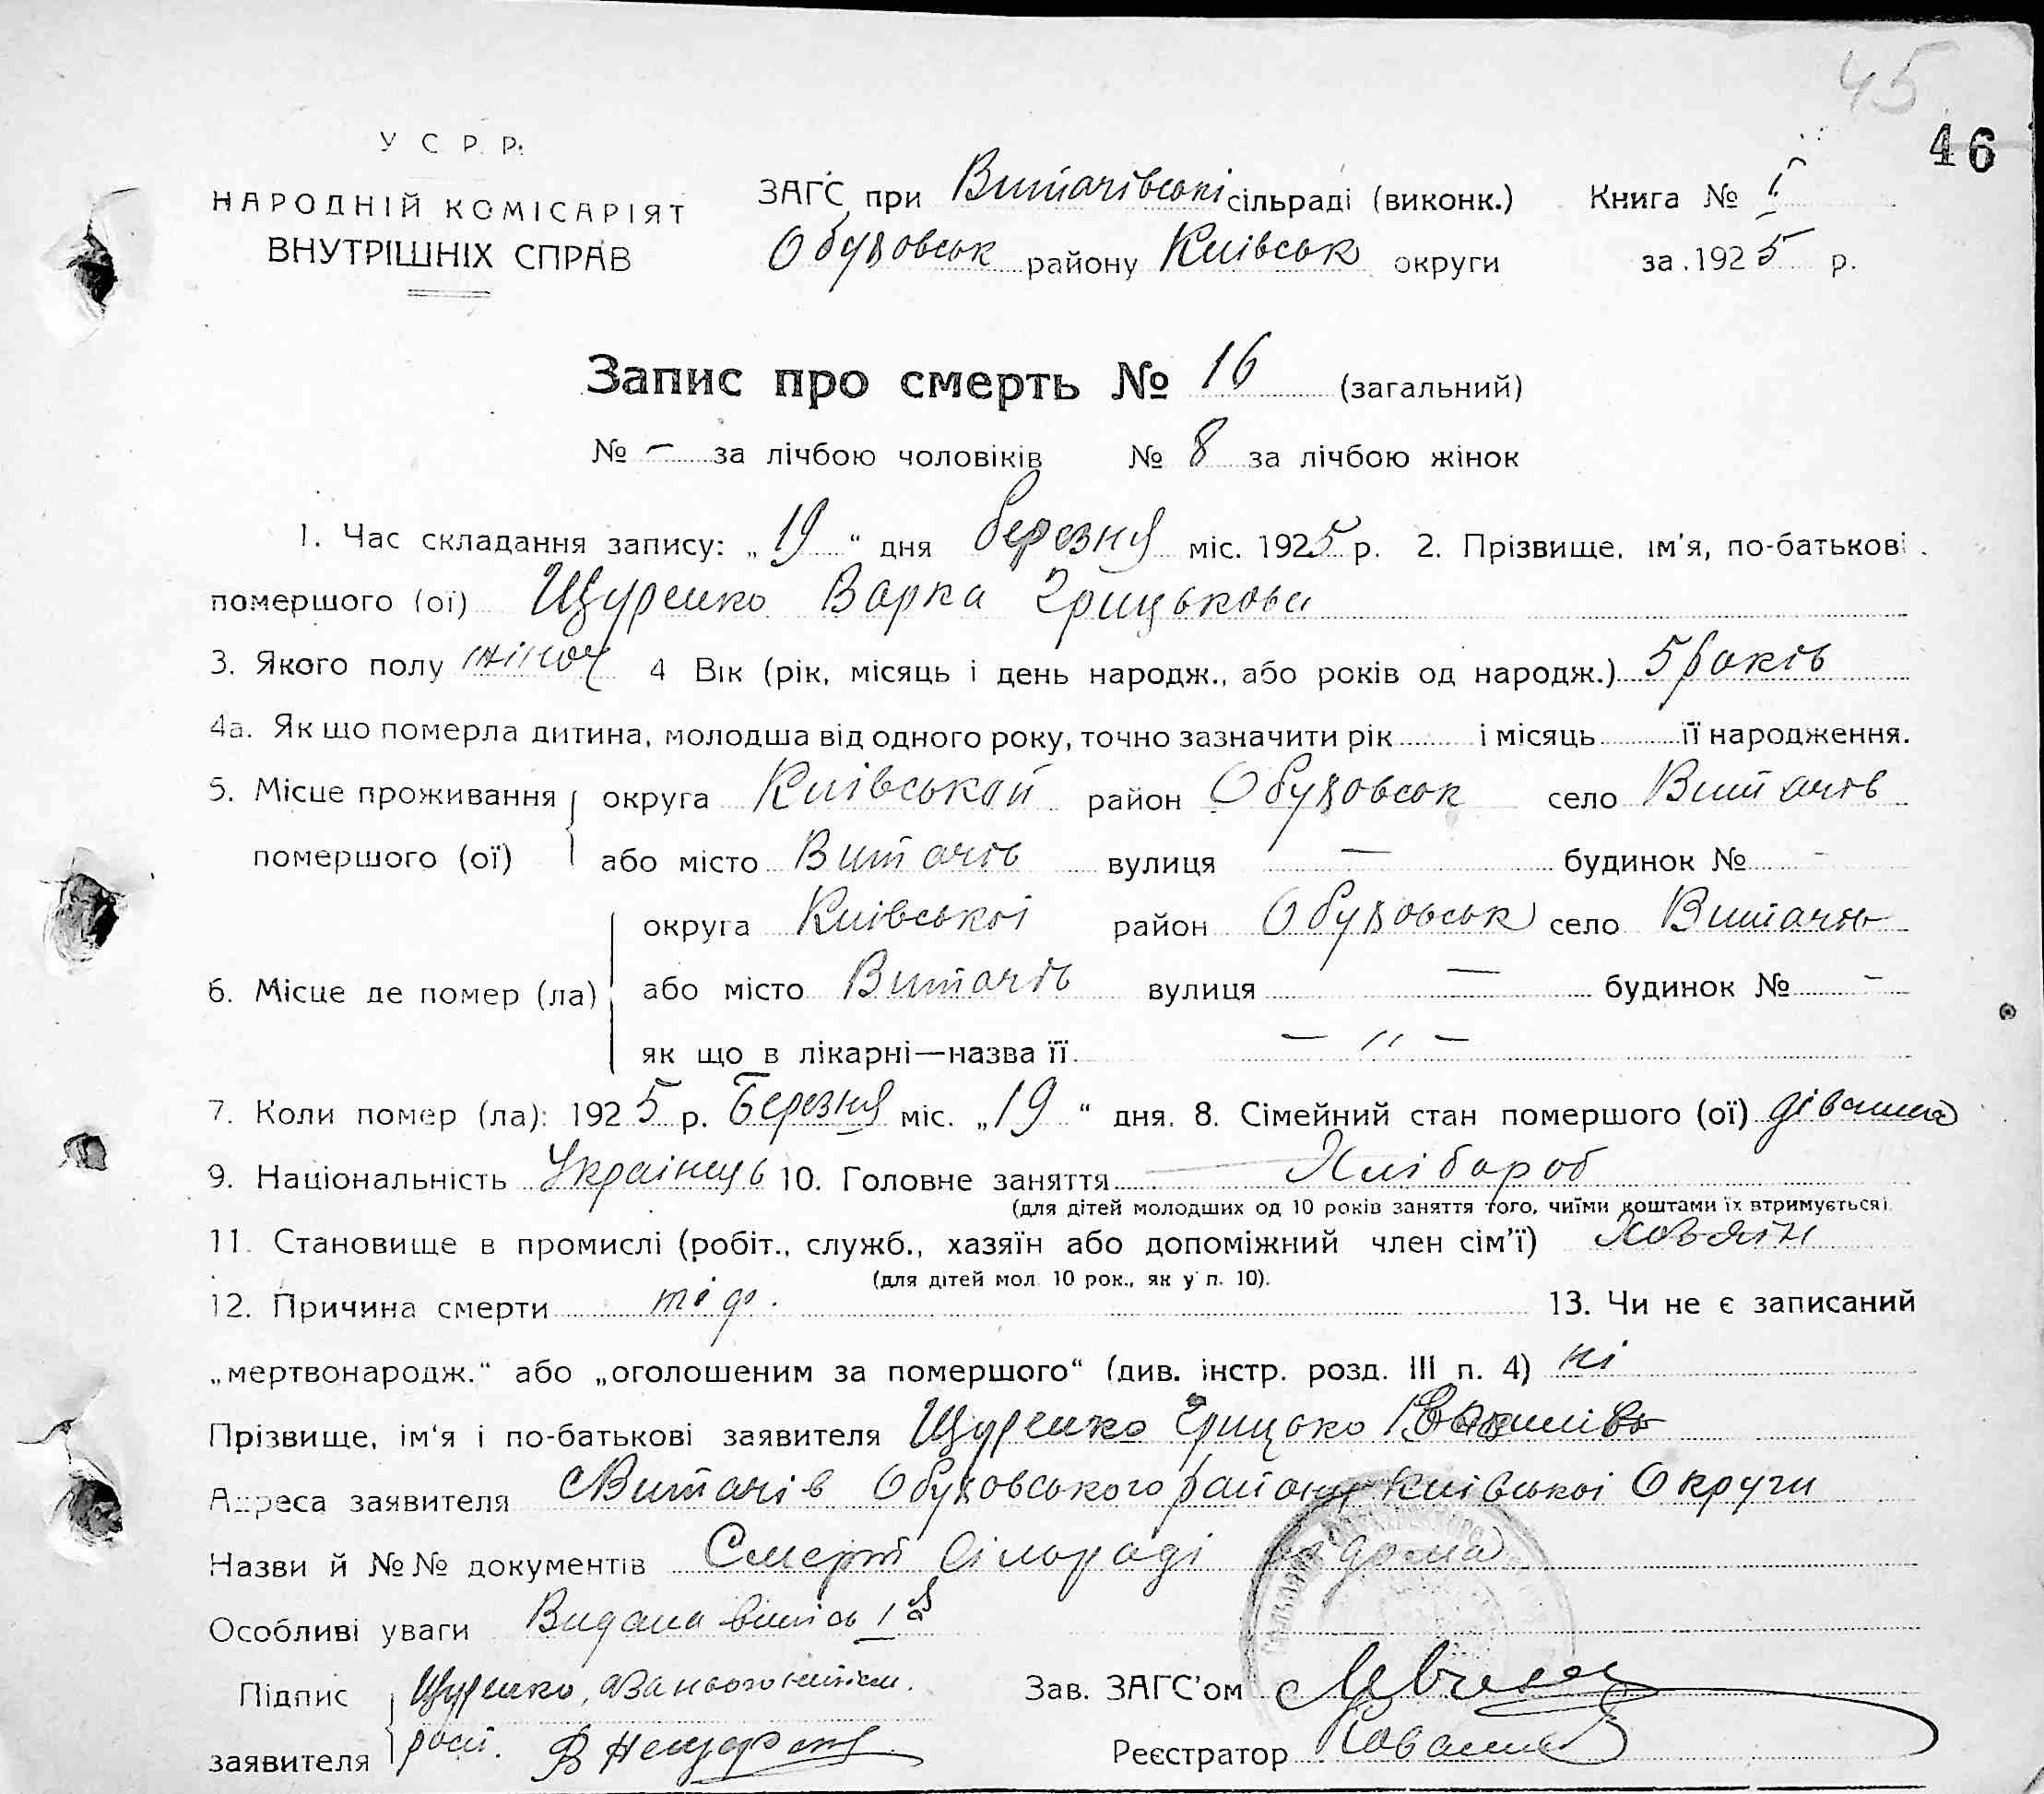 45
46
У С Р Р.
НАРОДНІЙ КОМІСАРІЯТ
ВНУТРІШНІХ СПРАВ
ЗАГС при Витачівські сільраді (виконк.) Книга № I
Обуховськ району Київськ округи за 1925 р.
Запис про смерть № 16 (загальний)
№ – за лічбою чоловіків № 8 за лічбою жінок
1. Час складання запису: „19“ дня березня міс. 1925 р. 2. Прізвище, ім'я, по-батькові
помершого (ої) Щуренко Варка Грицькова
3. Якого полу жіноч 4 Вік (рік, місяць і день народж., або років од народж.) 5 років
4а. Як що померла дитина, молодша від одного року, точно зазначити рік і місяць її народження.
5. Місце проживання округа Київської район Обуховськ село Витачів
помершого (ої) або місто Витачів вулиця — будинок № -
округа Київської район Обуховськ село Витачів
6. Місце де помер (ла) або місто Витачів вулиця — будинок № –
як що в лікарні—назва її — " —
7. Коли помер (ла): 1925 р. Березня міс. „19“ дня. 8. Сімейний стан помершого (ої) дівчина
9. Національність Українець 10. Головне заняття Хлібороб
(для дітей молодших од 10 років заняття того, чиїми коштами їх втримується)
11. Становище в промислі (робіт., служб., хазяїн або допоміжний член сім'ї) Хозяїн
(для дітей мол. 10 рок., як у п. 10).
12. Причина смерти тіф. 13. Чи не є записаний
„мертвонародж.“ або „оголошеним за помершого“ (див. інстр. розд. III п. 4) ні
Прізвище, ім'я і по-батькові заявителя Щуренко Грицько
Адреса заявителя с Витачів Обуховського району Київської Округи
Назви й №№ документів Смерт сільраді відома
Особливі уваги Видана випись
Підпис Щуренко, а за нього
заявителя розп.
Зав. ЗАГС'ом
Реєстратор